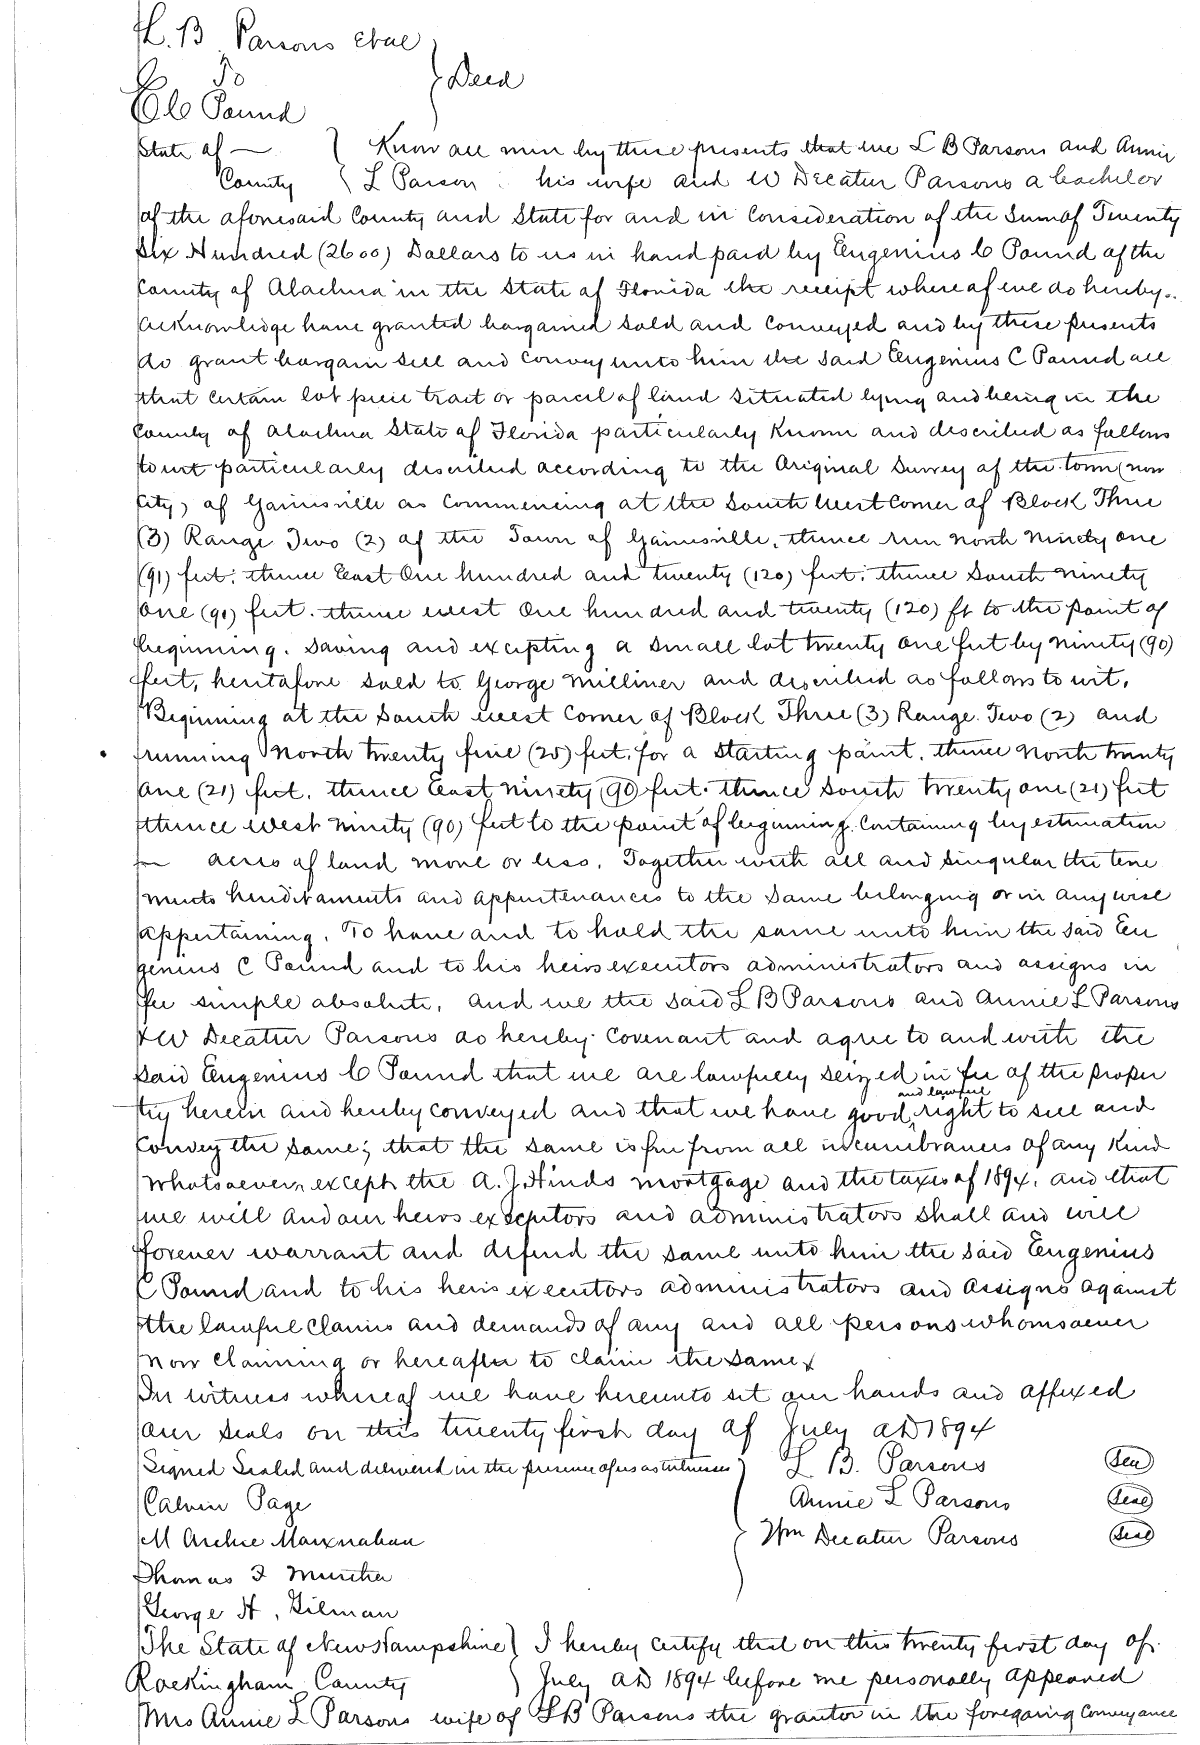 L. B. Parsons etal
To } Deed
E C Pound
State of — } Know all men by these presents that we L B Parsons and Annie
County } L Parson : his wife and W Decatur Parsons a bachelor
of the aforesaid County and State for and in Consideration of the Sum of Twenty
Six Hundred (2600) Dollars to us in hand paid by Eugenius C Pound of the
County of Alachua in the State of Florida the receipt where of we do hereby..
Acknowledge have granted bargained sold and conveyed and by these presents
do grant bargain sell and convey unto him the said Eugenius C Pound all
that certain lot piece tract or parcel of land situated lying and being in the
County of Alachua State of Florida particularly Known and described as follows
to wit particularly described according to the Original Survey of the town (now
City) of Gainesville as Commencing at the South West Corner of Block Three
(3) Range Two (2) of the Town of Gainesville, thence run North Ninety one
(91) feet; thence East One hundred and twenty (120) feet; thence South Ninety
One (91) feet. thence west One hundred and twenty (120) ft to the point of
beginning. Saving and excepting a small lot twenty one feet by ninety (90)
feet, heretofore sold to George Milliner and described as follows to wit.
Beginning at the South west Corner of Block Three (3) Range Two (2) and
running North twenty five (25) feet, for a starting point, thence North twenty
One (21) feet, thence East Ninety (90) feet. thence South twenty one (21) feet
thence West Ninety (90) feet to the point of beginning. Containing by estimation
— acres of land more or less. Together with all and singular the tene
ments hereditaments and appurtenances to the same belonging or in anywise
appertaining. To have and to hold the same unto him the said Eu
genius C Pound and to his heirs executors administrators and assigns in
fee simple absolute. And we the said L B Parsons and Annie L Parsons
& W Decatur Parsons do hereby Covenant and agree to and with the
said Eugenius C Pound that we are lawfully seized in fee of the proper
ty herein and hereby conveyed and that we have good and lawful right to sell and
Convey the same; that the same is free from all incumbrances of any Kind
Whatsoever, except the A. J. Hinds mortgage and the taxes of 1894, and that
we will and our heirs executors and administrators shall and will
forever warrant and defend the same unto him the said Eugenius
C Pound and to his heirs executors administrators and assigns against
the lawful claims and demands of any and all persons whomsoever
Now Claiming or hereafter to claim the same
In witness whereof we have hereunto set our hands and affixed
our seals on this twenty first day of July AD 1894
Signed Sealed and delivered in the presence of us as witnesses } L B. Parsons (Seal)
Calvin Page Annie L Parsons (Seal)
M Archie Wm Decatur Parsons (Seal)
Thomas F
George H. Gilman
The State of New Hampshire } I hereby certify that on this twenty first day of
Rockingham County } July AD 1894 before me personally appeared
Mrs Annie L Parsons wife of L B Parsons the grantor in the foregoing Conveyance